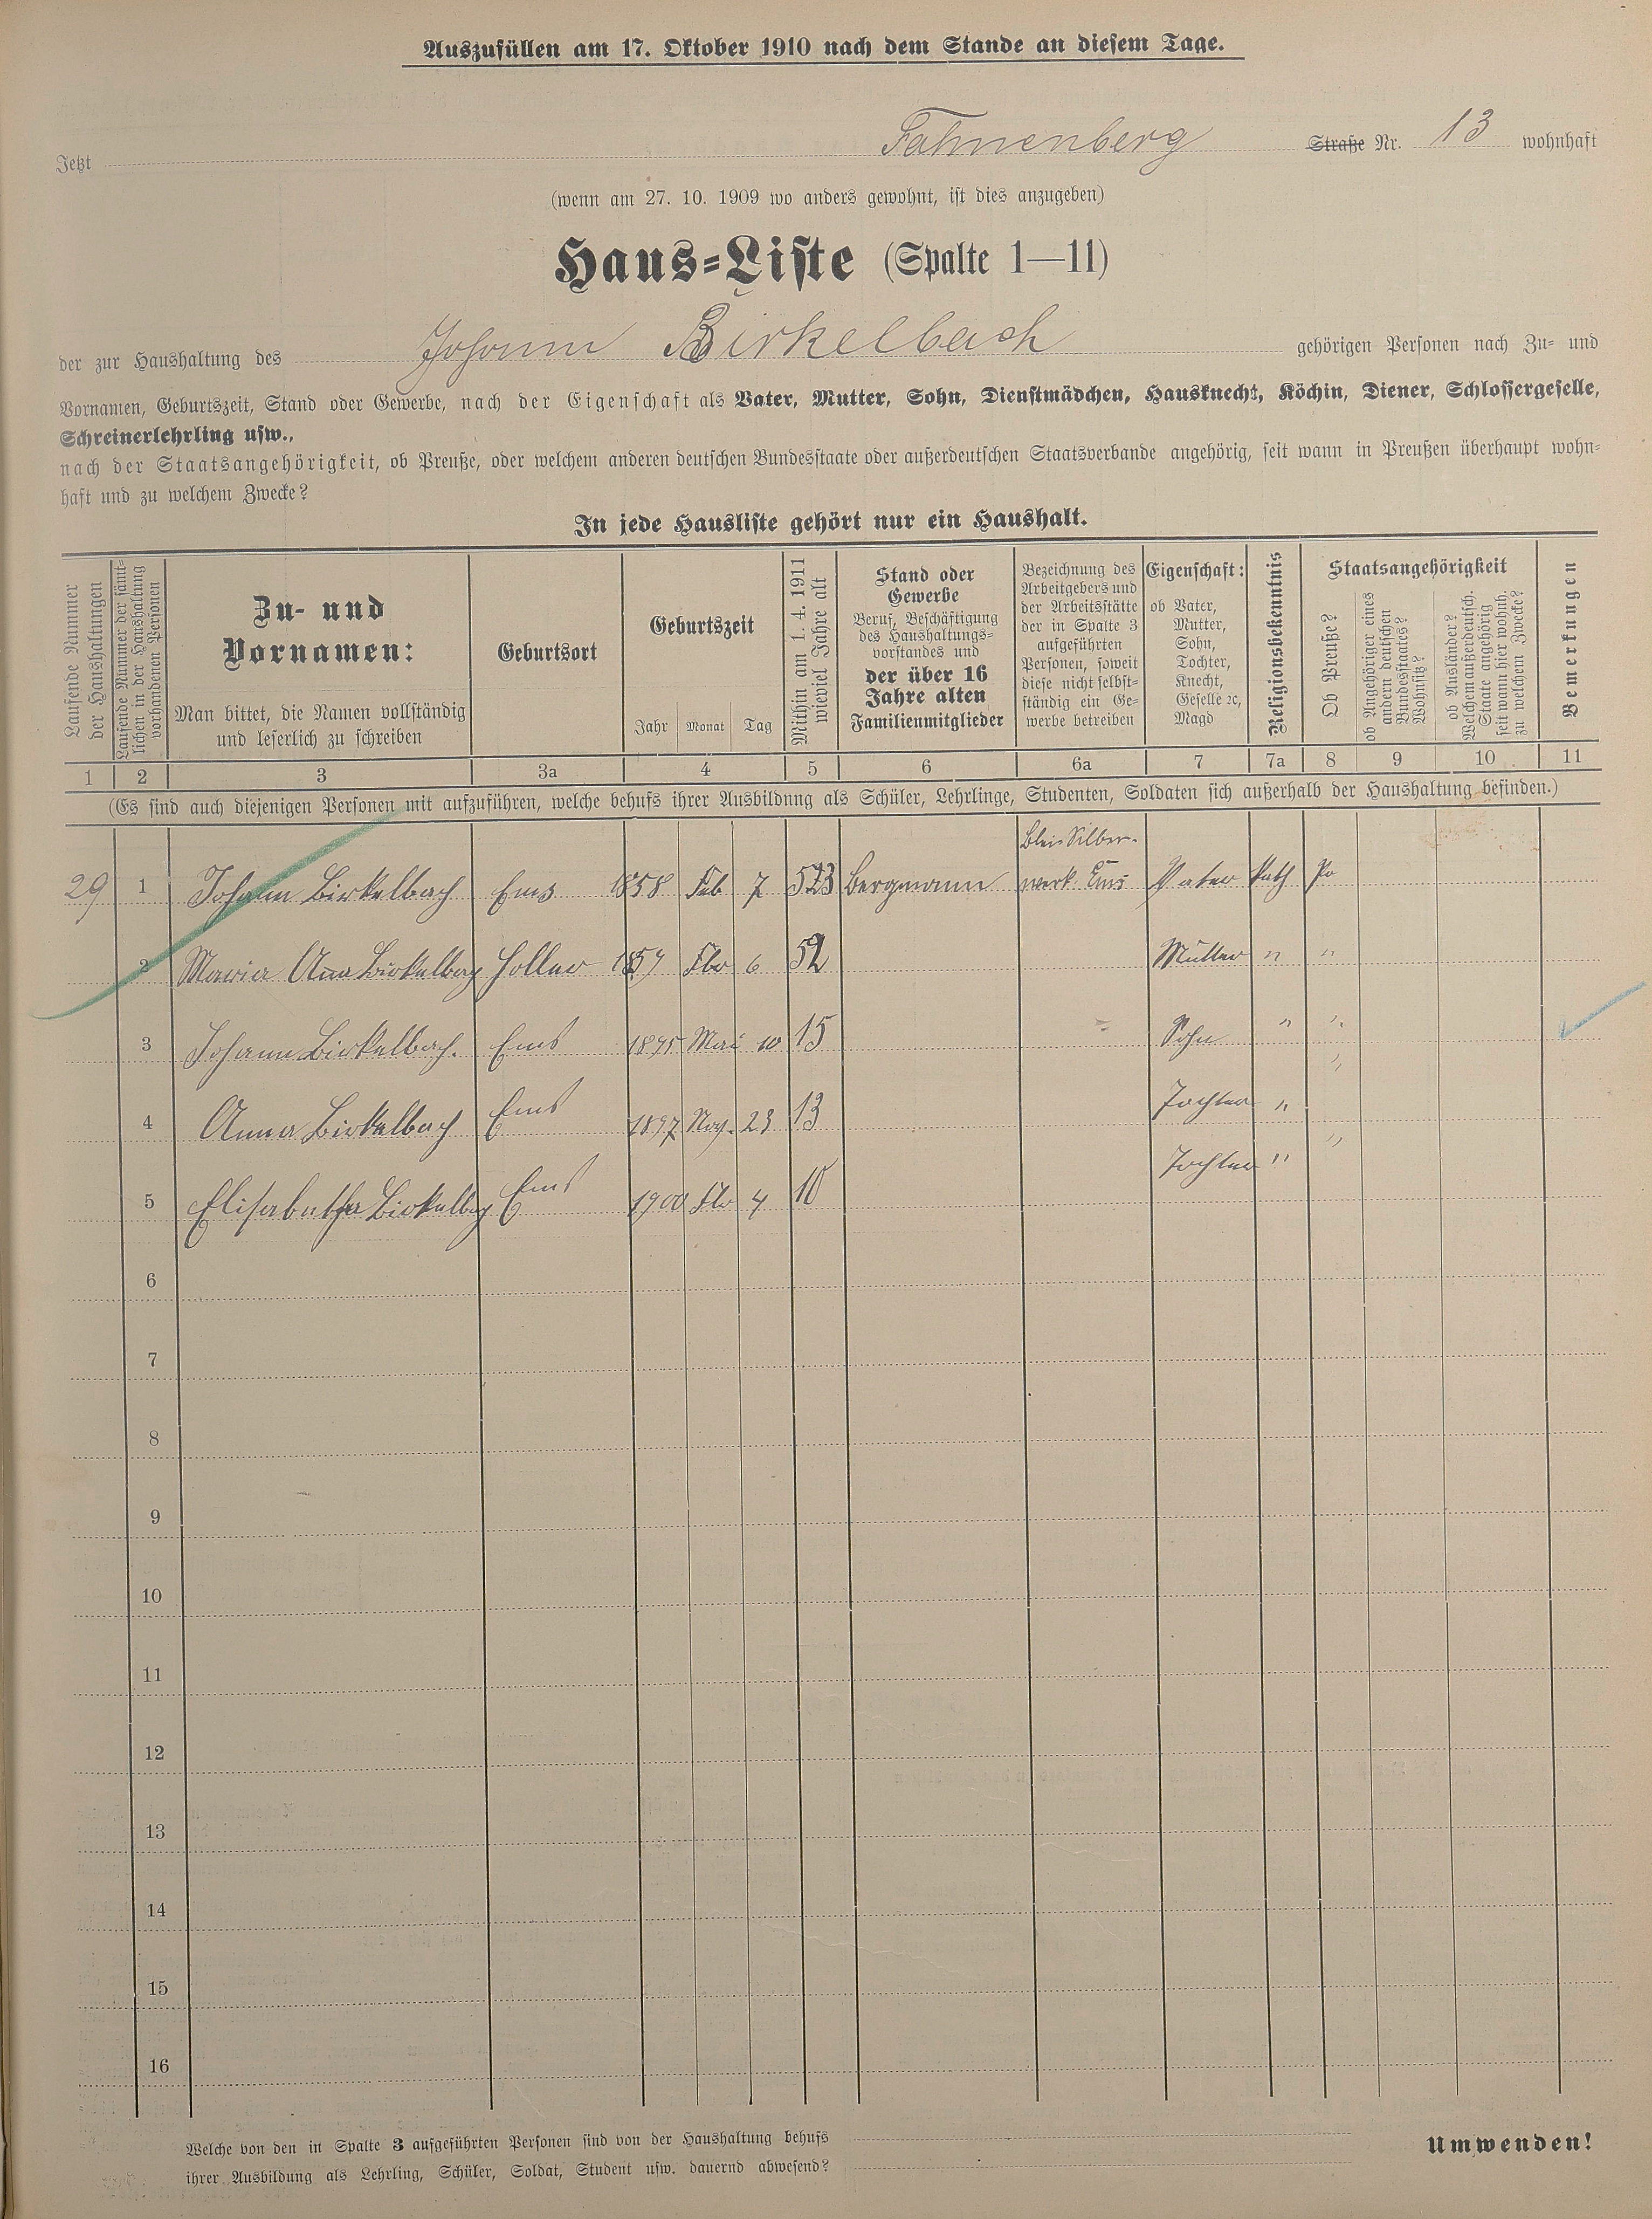 Auszufüllen am 17. Oktober 1910 nach dem Stande an diesem Tage.
Jetzt Fahnenberg Straße Nr. 13 wohnhaft
(wenn am 27. 10. 1909 wo anders gewohnt, ist dies anzugeben)
Haus-Liste (Spalte 1—11)
der zur Haushaltung des Johann Birkelbach gehörigen Personen nach Zu- und
Vornamen, Geburtszeit, Stand oder Gewerbe, nach der Eigenschaft als Vater, Mutter, Sohn, Dienstmädchen, Hausknecht, Köchin, Diener, Schlossergeselle,
Schreinerlehrling usw.,
nach der Staatsangehörigkeit, ob Preuße, oder welchem anderen deutschen Bundesstaate oder außerdeutschen Staatsverbande angehörig, seit wann in Preußen überhaupt wohn-
haft und zu welchem Zwecke?
In jede Hausliste gehört nur ein Haushalt.
Laufende Nummer
der Haushaltungen
Laufende Nummer der sämt-
lichen in der Haushaltung
vorhandenen Personen
Zu- und
Vornamen:
Man bittet, die Namen vollständig
und leserlich zu schreiben
Geburtsort
Geburtszeit
Jahr Monat Tag
Mithin am 1. 4. 1911
wieviel Jahre alt
Stand oder
Gewerbe
Beruf, Beschäftigung
des Haushaltungs-
vorstandes und
der über 16
Jahre alten
Familienmitglieder
Bezeichnung des
Arbeitgebers und
der Arbeitsstätte
der in Spalte 3
aufgeführten
Personen, soweit
diese nicht selbst-
ständig ein Ge-
werbe betreiben
Eigenschaft:
ob Vater,
Mutter,
Sohn,
Tochter,
Knecht,
Geselle ꝛc,
Magd
Religionsbekenntnis
Staatsangehörigkeit
Ob Preuße?
ob Angehöriger eines
andern deutschen
Bundesstaates?
Wohnsitz?
ob Ausländer?
Welchem außerdeutsch.
Staate angehörig
seit wann hier wohnh.
zu welchem Zwecke?
Bemerkungen
1 2 3 3a 4 5 6 6a 7 7a 8 9 10 11
(Es sind auch diejenigen Personen mit aufzuführen, welche behufs ihrer Ausbildung als Schüler, Lehrlinge, Studenten, Soldaten sich außerhalb der Haushaltung befinden.)
Blei Silber-
29 1 Johann Birkelbach Ems 1858 Feb 7 53 Bergmann werk Ems Vater Kath Pr
2 Maria Anna Birkelbach Holler Fbr 6 52 Mutter " "
3 Johann Birkelbach. Ems 1895 Mai 10 15 Sohn " "
4 Anna Birkelbach Ems 1897 Nov. 23 13 Tochter " "
5 Elisabetha Birkelbach Ems 1900 Fbr 4 10 Tochter " "
6
7
8
9
10
11
12
13
14
15
16
Welche von den in Spalte 3 aufgeführten Personen sind von der Haushaltung behufs
ihrer Ausbildung als Lehrling, Schüler, Soldat, Student usw. dauernd abwesend?
Umwenden!